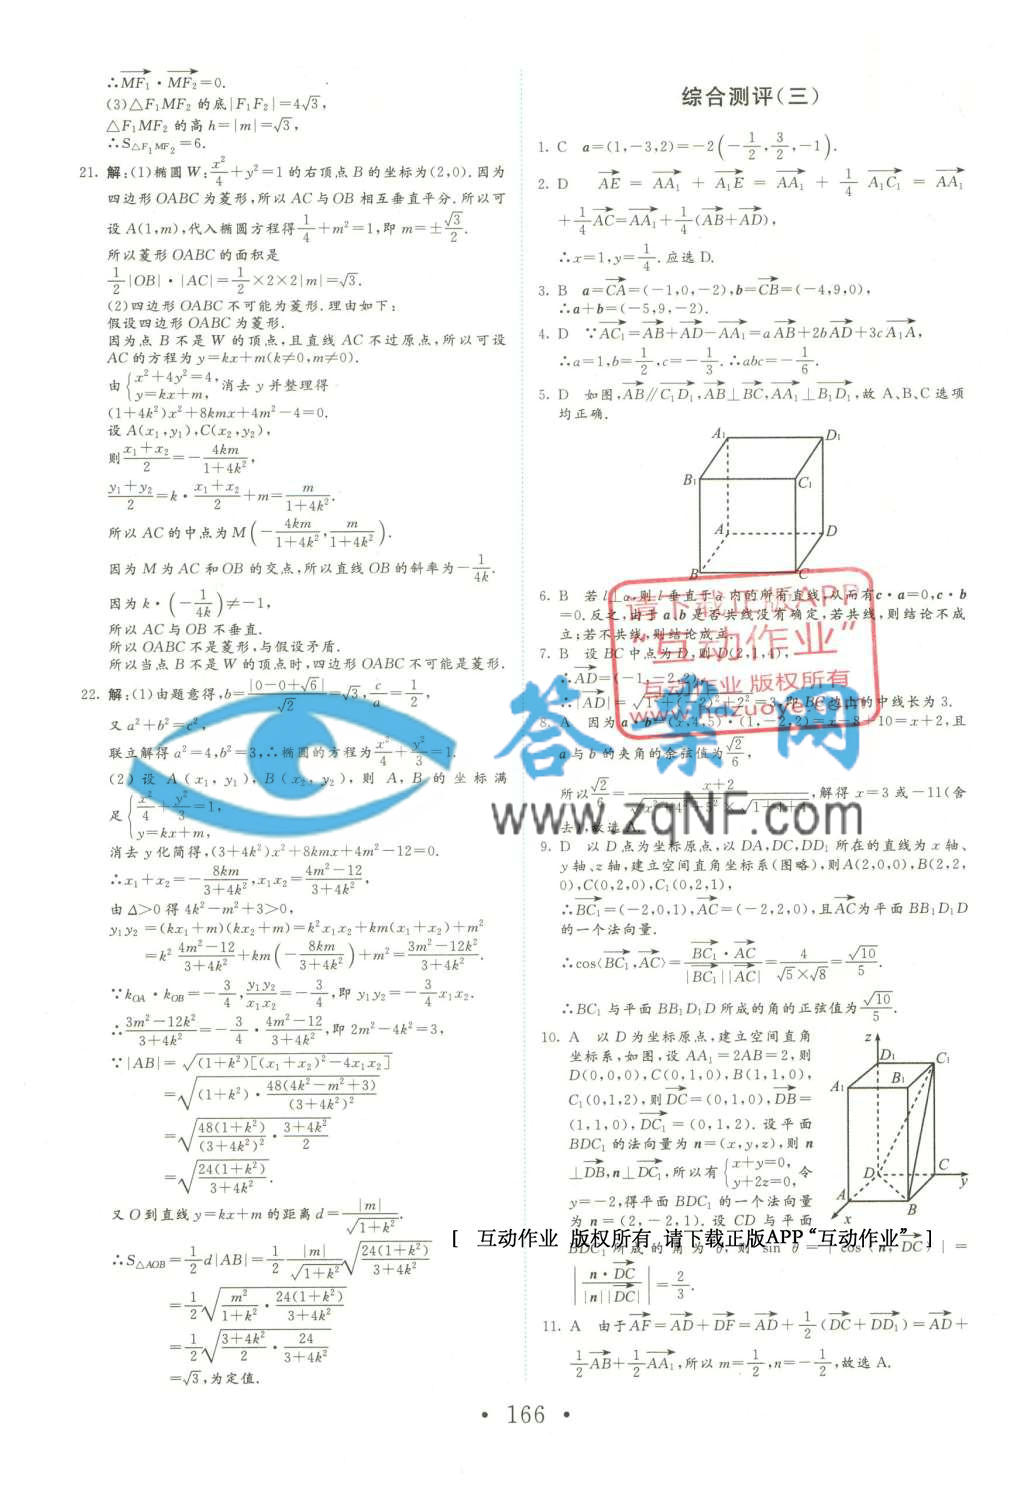 ∴MF₁·MF₂=0.
(3)△F₁MF₂ 的底|F₁F₂|=4√3,
△F₁MF₂ 的高 h=|m|=√3,
∴S△F₁MF₂=6.
21. 解:(1)椭圆 W:x²/4+y²=1 的右顶点 B 的坐标为(2,0).因为
四边形 OABC 为菱形,所以 AC 与 OB 相互垂直平分.所以可
设 A(1,m),代入椭圆方程得1/4+m²=1,即 m=±√3/2.
所以菱形 OABC 的面积是
1/2|OB|·|AC|=1/2×2×2|m|=√3.
(2)四边形 OABC 不可能为菱形.理由如下:
假设四边形 OABC 为菱形.
因为点 B 不是 W 的顶点,且直线 AC 不过原点,所以可设
AC 的方程为 y=kx+m(k≠0,m≠0).
由{x²+4y²=4, y=kx+m, 消去 y 并整理得
(1+4k²)x²+8kmx+4m²-4=0.
设 A(x₁,y₁),C(x₂,y₂),
则(x₁+x₂)/2=-4km/(1+4k²),
(y₁+y₂)/2=k·(x₁+x₂)/2+m=m/(1+4k²).
所以 AC 的中点为 M(-4km/(1+4k²),m/(1+4k²)).
因为 M 为 AC 和 OB 的交点,所以直线 OB 的斜率为-1/4k.
因为 k·(-1/4k)≠-1,
所以 AC 与 OB 不垂直.
所以 OABC 不是菱形,与假设矛盾.
所以当点 B 不是 W 的顶点时,四边形 OABC 不可能是菱形.
22. 解:(1)由题意得,b=|0-0+√6|/√2=√3,c/a=1/2,
又 a²+b²=c²,
联立解得 a²=4,b²=3,∴椭圆的方程为x²/4+y²/3=1.
(2)设 A(x₁,y₁),B(x₂,y₂),则 A,B 的坐标满
足{x²/4+y²/3=1, y=kx+m,
消去 y 化简得,(3+4k²)x²+8kmx+4m²-12=0.
∴x₁+x₂=-8km/(3+4k²),x₁x₂=(4m²-12)/(3+4k²),
由 Δ>0 得 4k²-m²+3>0,
y₁y₂=(kx₁+m)(kx₂+m)=k²x₁x₂+km(x₁+x₂)+m²
=k²(4m²-12)/(3+4k²)+km(-8km/(3+4k²))+m²=(3m²-12k²)/(3+4k²).
∵kOA·kOB=-3/4,y₁y₂/x₁x₂=-3/4,即 y₁y₂=-3/4x₁x₂.
∴(3m²-12k²)/(3+4k²)=-3/4·(4m²-12)/(3+4k²),即 2m²-4k²=3,
∵|AB|=√((1+k²)[(x₁+x₂)²-4x₁x₂])
=√((1+k²)·48(4k²-m²+3)/(3+4k²)²)
=√(48(1+k²)/(3+4k²)²·(3+4k²)/2)
=√(24(1+k²)/(3+4k²)).
又 O 到直线 y=kx+m 的距离 d=|m|/√(1+k²).
∴S△AOB=1/2 d|AB|=1/2 |m|/√(1+k²) √(24(1+k²)/(3+4k²))
=1/2√(m²/(1+k²)·24(1+k²)/(3+4k²))
=1/2√((3+4k²)/2·24/(3+4k²))
=√3,为定值.
综合测评(三)
1. C a=(1,-3,2)=-2(-1/2,3/2,-1).
2. D AE=AA₁+A₁E=AA₁+1/4A₁C₁=AA₁
+1/4AC=AA₁+1/4(AB+AD),
∴x=1,y=1/4.应选 D.
3. B a=CA=(-1,0,-2),b=CB=(-4,9,0),
∴a+b=(-5,9,-2).
4. D ∵AC₁=AB+AD-AA₁=aAB+2bAD+3cA₁A,
∴a=1,b=1/2,c=-1/3.∴abc=-1/6.
5. D 如图,AB∥C₁D₁,AB⊥BC,AA₁⊥B₁D₁,故 A、B、C 选项
均正确.
A₁ D₁
B₁ C₁
A D
B C
6. B 若 l⊥α,则 l 垂直于 α 内的所有直线,从而有 c·a=0,c·b
=0.反之,由于 a,b 是否共线没有确定,若共线,则结论不成
立;若不共线,则结论成立.
7. B 设 BC 中点为 D,则 D(2,1,4),
∴AD=(-1,-2,2),
∴|AD|=√(1²+(-2)²+2²)=3,即 BC 边上的中线长为 3.
8. A 因为 a·b=(x,4,5)·(1,-2,2)=x-8+10=x+2,且
a 与 b 的夹角的余弦值为√2/6,
所以√2/6=(x+2)/(√(x²+4²+5²)×√(1+4+4)),解得 x=3 或-11(舍
去),故选 A.
9. D 以 D 点为坐标原点,以 DA,DC,DD₁ 所在的直线为 x 轴、
y 轴、z 轴,建立空间直角坐标系(图略),则 A(2,0,0),B(2,2,
0),C(0,2,0),C₁(0,2,1),
∴BC₁=(-2,0,1),AC=(-2,2,0),且AC为平面 BB₁D₁D
的一个法向量.
∴cos⟨BC₁,AC⟩=BC₁·AC/(|BC₁||AC|)=4/(√5×√8)=√10/5.
∴BC₁ 与平面 BB₁D₁D 所成的角的正弦值为√10/5.
10. A 以 D 为坐标原点,建立空间直角
坐标系,如图,设 AA₁=2AB=2,则
D(0,0,0),C(0,1,0),B(1,1,0),
C₁(0,1,2),则DC=(0,1,0),DB=
(1,1,0),DC₁=(0,1,2).设平面
BDC₁ 的法向量为 n=(x,y,z),则 n
⊥DB,n⊥DC₁,所以有{x+y=0, y+2z=0, 令
y=-2,得平面 BDC₁ 的一个法向量
为 n=(2,-2,1).设 CD 与平面
BDC₁ 所成的角为 θ,则 sin θ=|cos⟨n,DC⟩|=
|n·DC/(|n||DC|)|=2/3.
z
D₁ C₁
A₁ B₁
D C y
A B
x
11. A 由于AF=AD+DF=AD+1/2(DC+DD₁)=AD+
1/2AB+1/2AA₁,所以 m=1/2,n=-1/2,故选 A.
请下载正版APP
“互动作业”
互动作业 版权所有
www.hdzuoye.com
答案网
www.zqNF.com
[ 互动作业 版权所有 请下载正版APP“互动作业” ]
• 166 •